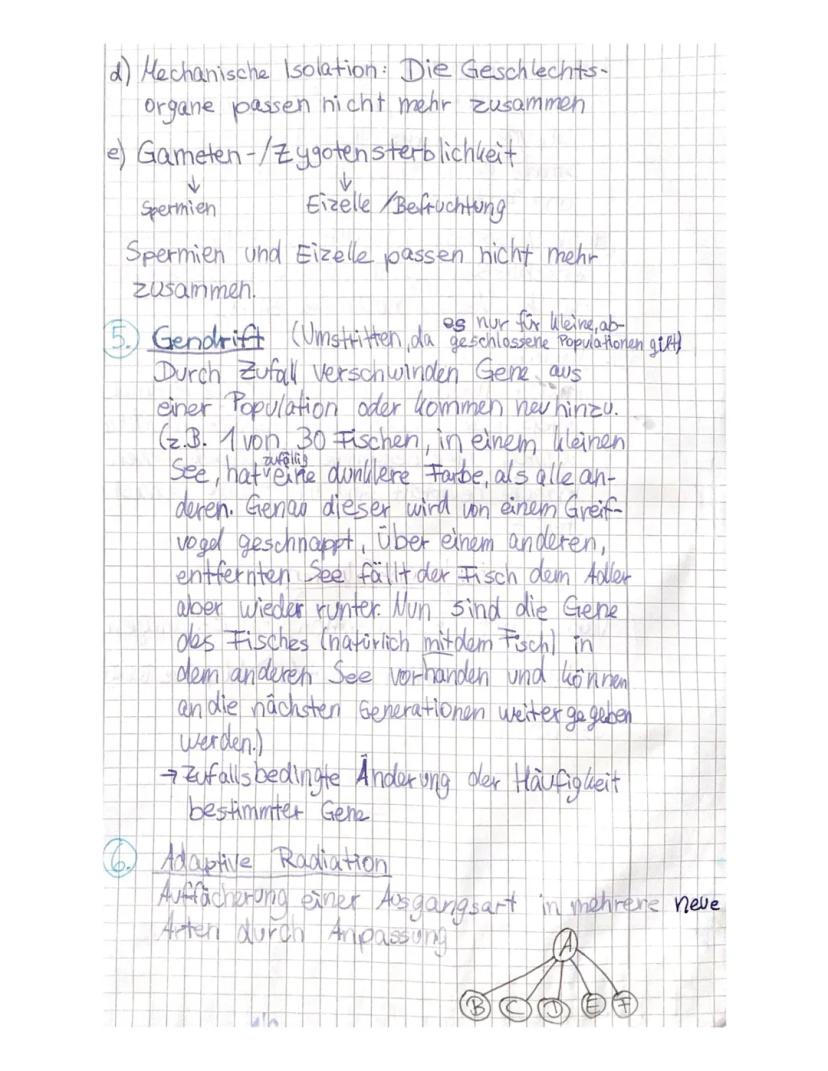 d) Mechanische Isolation: Die Geschlechts-
organe passen nicht mehr zusammen
e) Gameten-/Zygotensterblichkeit
↓ ↓
Spermien Eizelle/Befruchtung
Spermien und Eizelle passen nicht mehr
zusammen.
5. Gendrift (Umstritten, da es nur für kleine, ab-
geschlossene Populationen gilt)
Durch Zufall verschwinden Gene aus
einer Population oder kommen neu hinzu.
(z.B. 1 von 30 Fischen, in einem kleinen
See, hat zufällig eine dunklere Farbe, als alle an-
deren. Genau dieser wird von einem Greif-
vogel geschnappt, über einem anderen,
entfernten See fällt der Fisch dem Adler
aber wieder runter. Nun sind die Gene
des Fisches (natürlich mit dem Fisch) in
dem anderen See vorhanden und können
an die nächsten Generationen weitergegeben
werden.)
→ Zufallsbedingte Änderung der Häufigkeit
bestimmter Gene
6. Adaptive Radiation
Auffächerung einer Ausgangsart in mehrere neue
Arten durch Anpassung
A
B C D E F